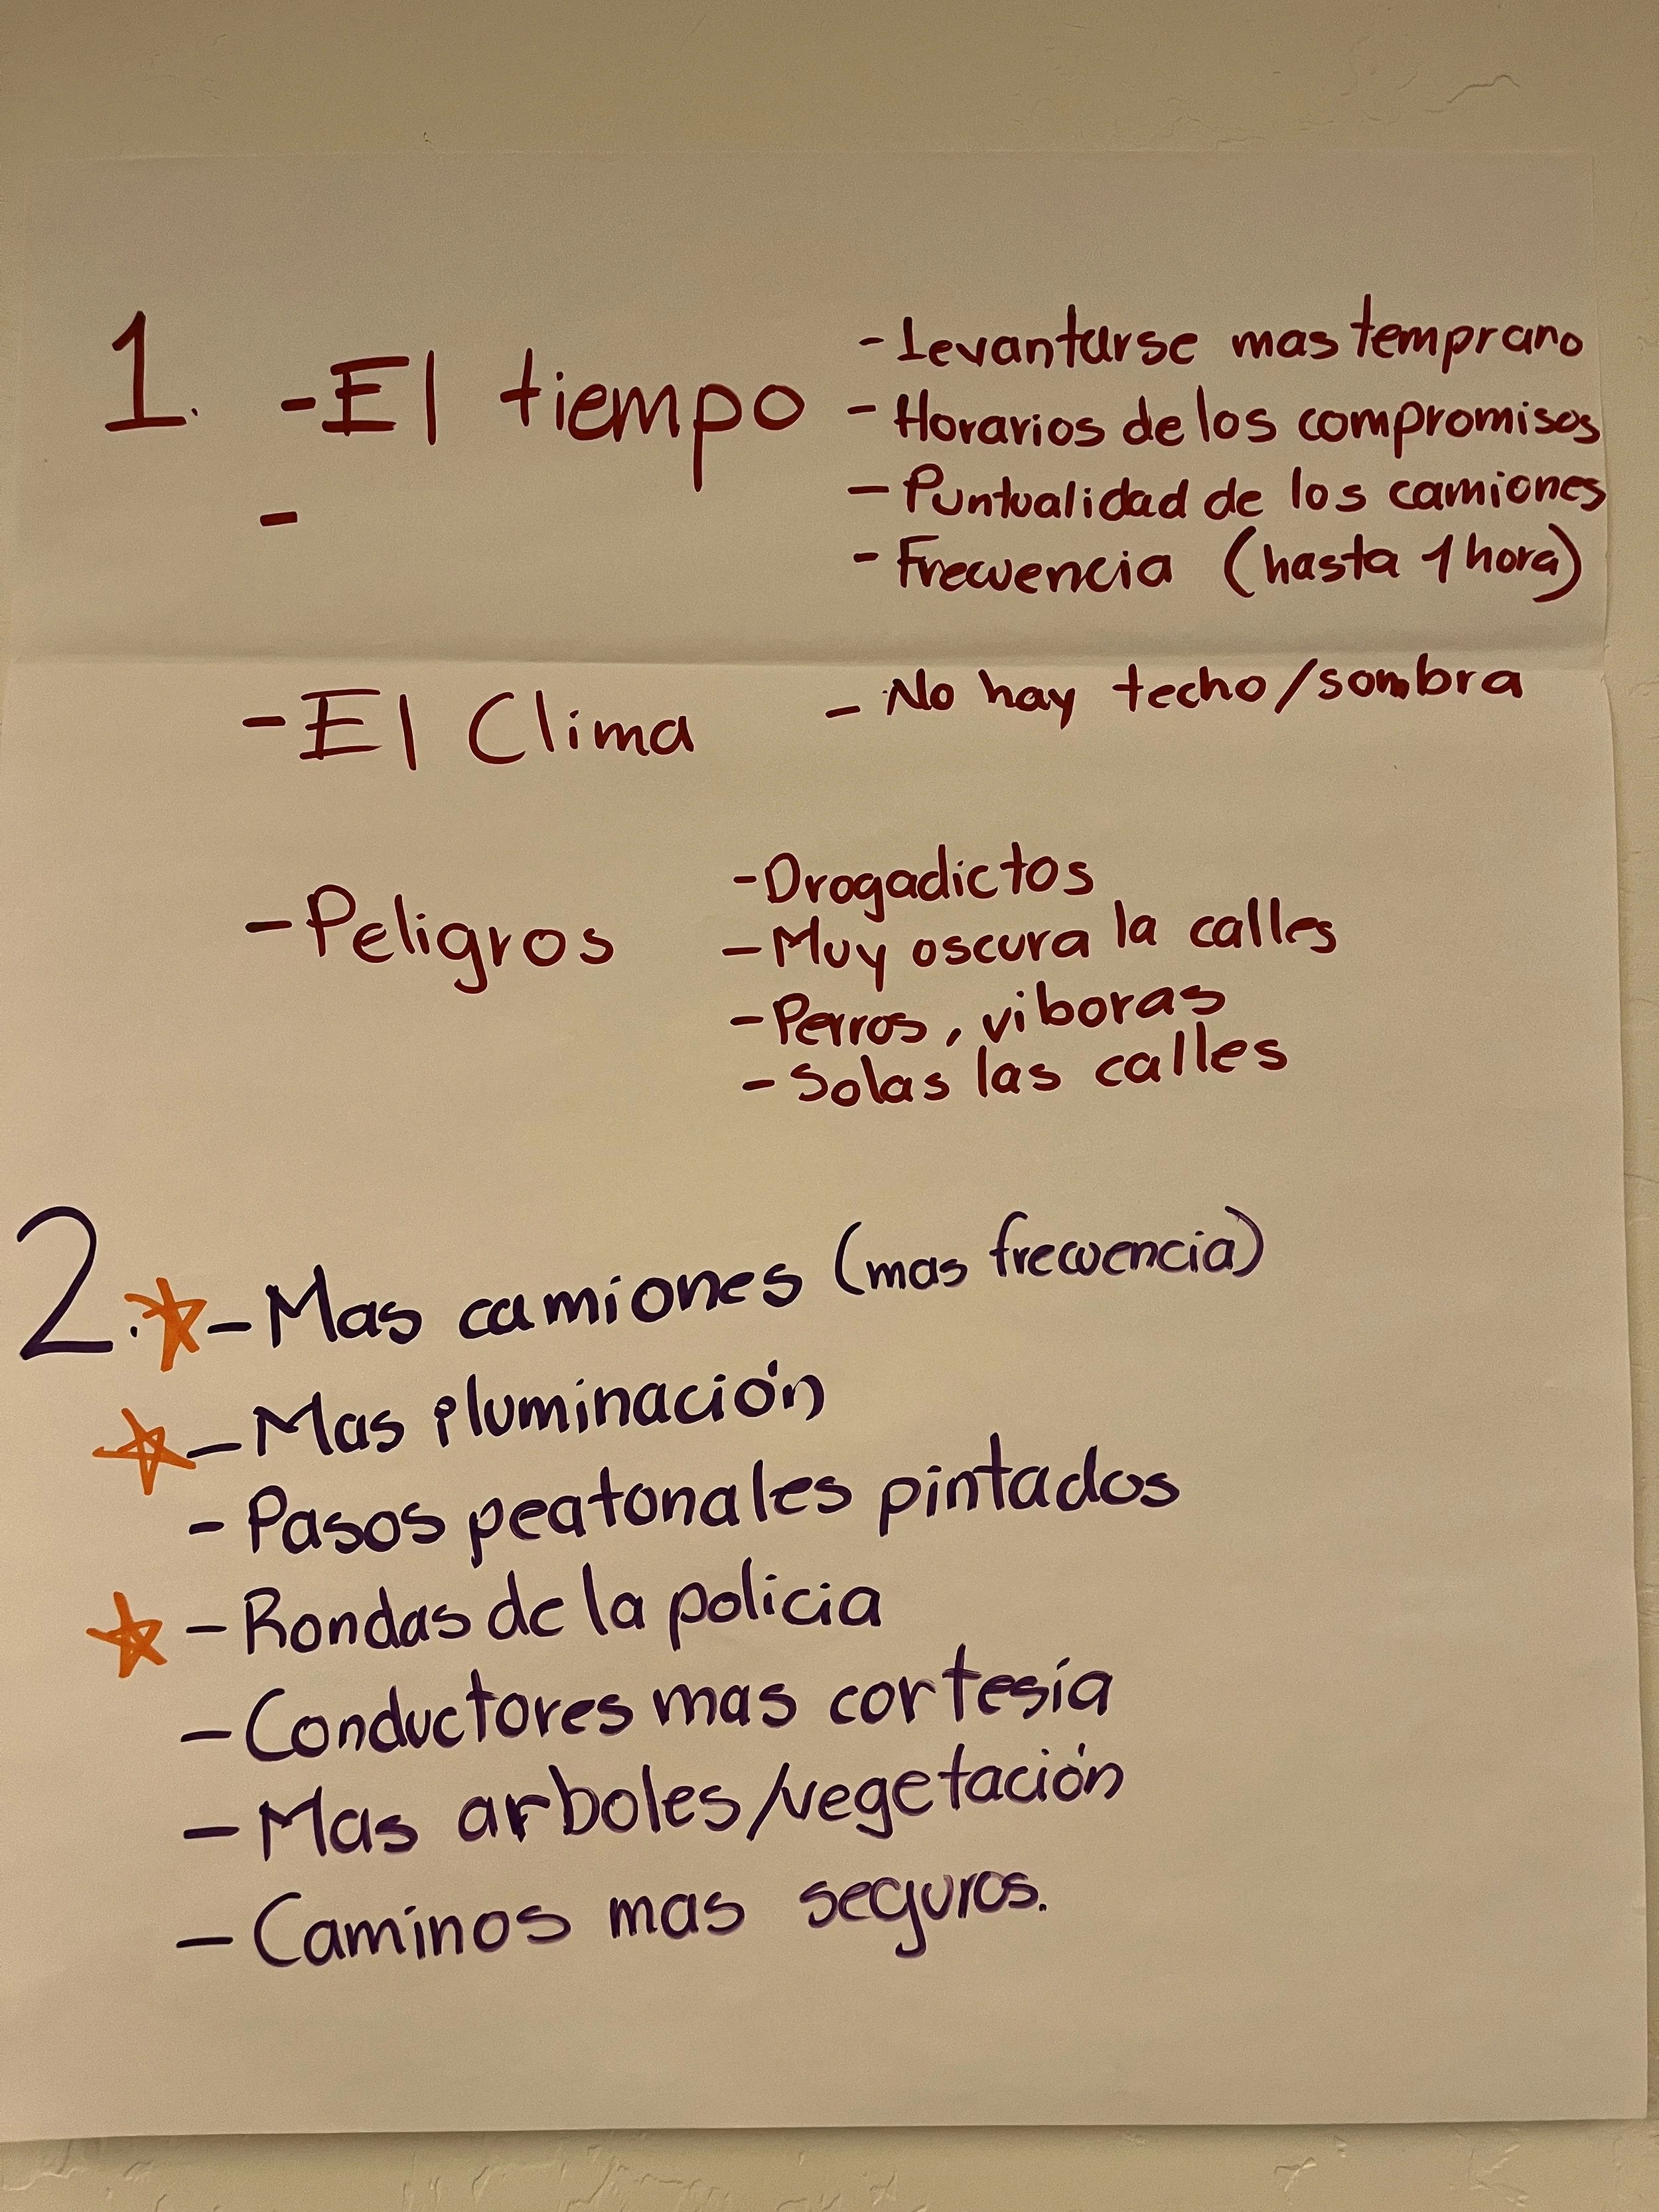 1. - El tiempo
- Levantarse mas temprano
- Horarios de los compromisos
- Puntualidad de los camiones
- Frecuencia (hasta 1 hora)
-
- El Clima
- No hay techo/sombra
- Peligros
- Drogadictos
- Muy oscura la calles
- Perros, viboras
- Solas las calles
2. - Mas camiones (mas frecuencia)
- Mas iluminación
- Pasos peatonales pintados
- Rondas de la policia
- Conductores mas cortesía
- Mas arboles/vegetación
- Caminos mas seguros.